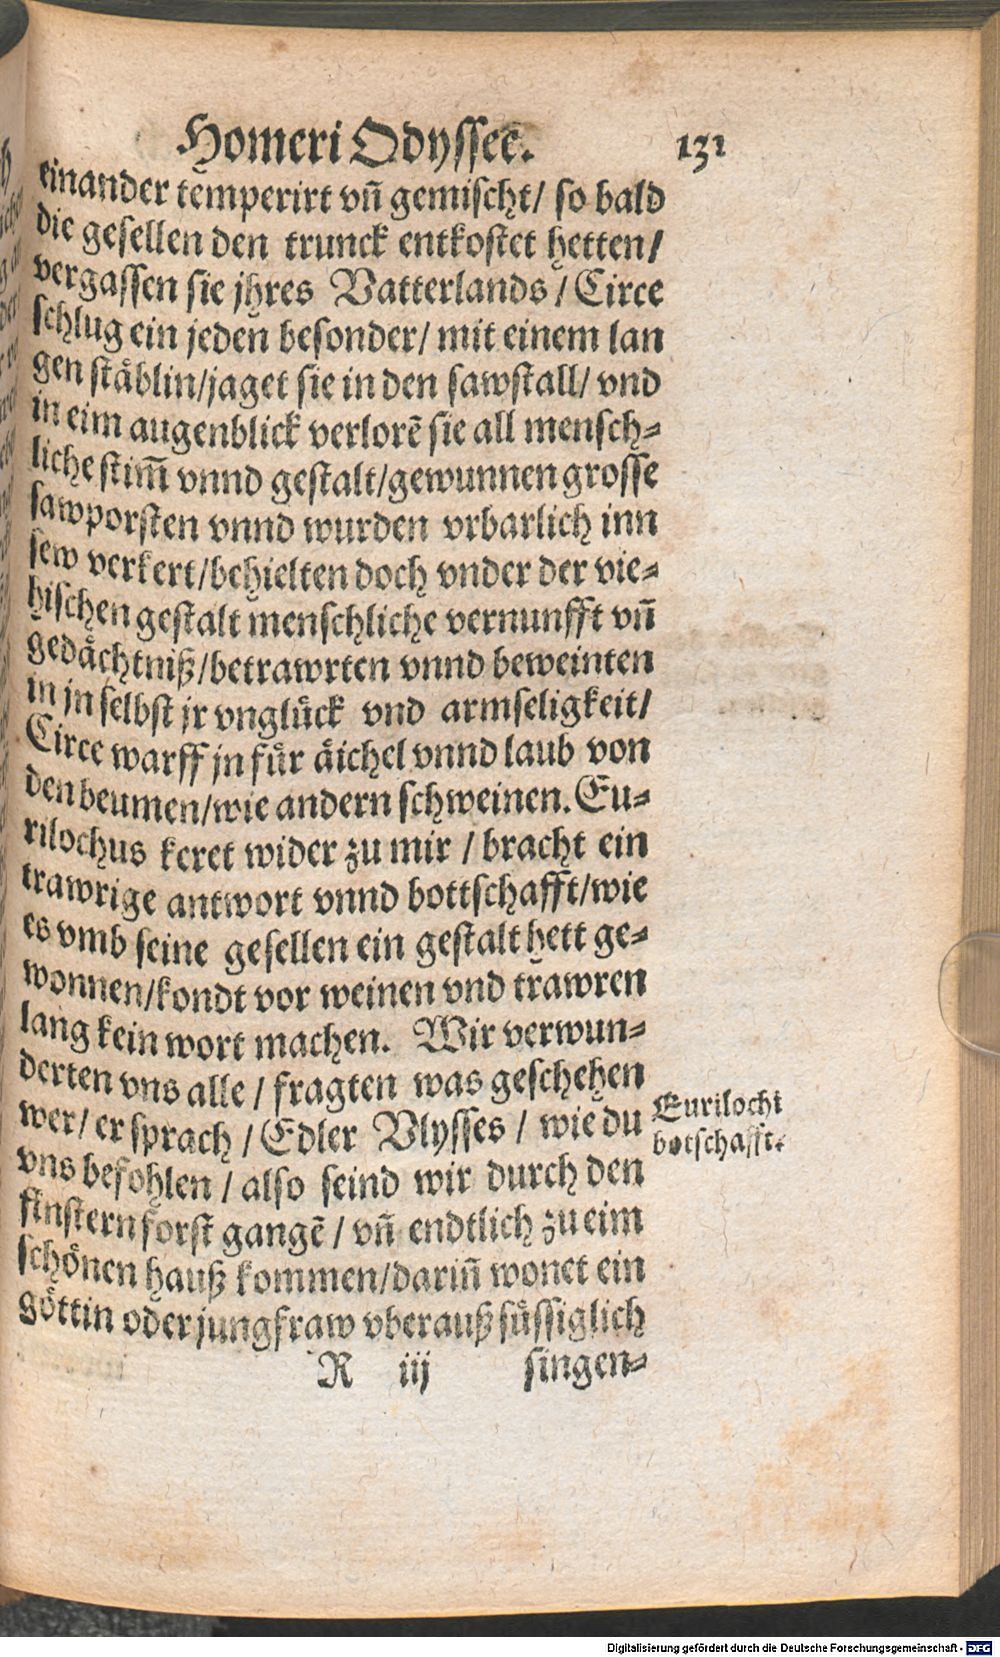 Homeri Odyssee. 131
einander temperirt vñ gemischt/ so bald
die gesellen den trunck entkostet hetten/
vergassen sie jhres Vatterlands / Circe
schlug ein jeden besonder/ mit einem lan
gen stäblin/jaget sie in den sawstall/ vnd
in eim augenblick verlorẽ sie all mensch-
liche stim̃ vnnd gestalt/gewunnen grosse
sawporsten vnnd wurden vrbarlich inn
sew verkert/behielten doch vnder der vie-
hischen gestalt menschliche vernunfft vñ
gedächtniß/betrawrten vnnd beweinten
in jn selbst jr vnglück vnd armseligkeit/
Circe warff jn für äichel vnnd laub von
den beumen/wie andern schweinen. Eu-
rilochus keret wider zu mir / bracht ein
trawrige antwort vnnd bottschafft/wie
es vmb seine gesellen ein gestalt hett ge-
wonnen/kondt vor weinen vnd trawren
lang kein wort machen. Wir verwun-
derten vns alle / fragten was geschehen
wer/ er sprach / Edler Vlysses / wie du
vns befohlen / also seind wir durch den
finstern forst gangẽ / vñ endtlich zu eim
schönen hauß kommen/dariñ wonet ein
göttin oder jungfraw vberauß süssiglich
R iij singen-
Eurilochi
botschafft.
Digitalisierung gefördert durch die Deutsche Forschungsgemeinschaft - DFG